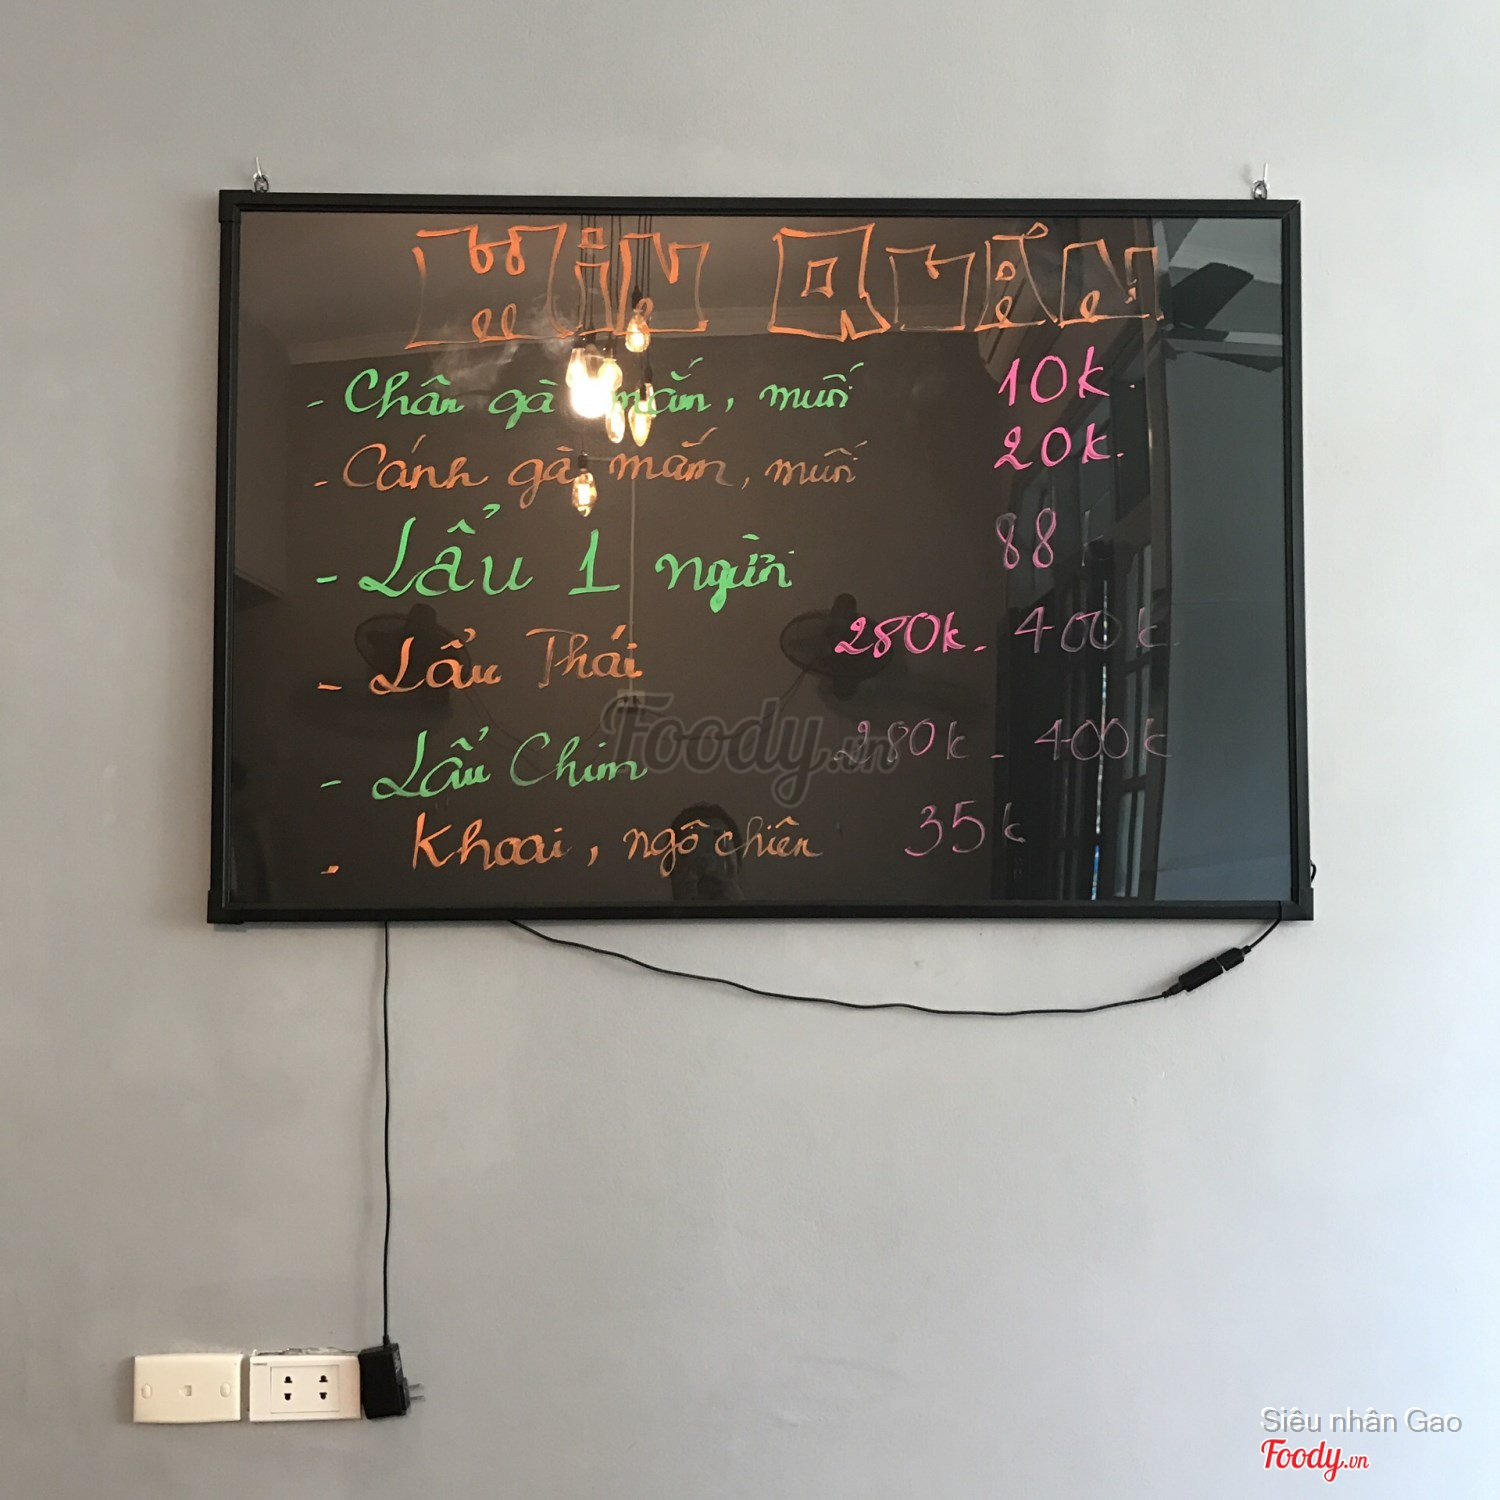 Min Quán
- Chân gà mắm, muối 10k.
- Cánh gà mắm, muối 20k.
- Lẩu 1 người 88k
- Lẩu Thái 280k - 400k
- Lẩu Chim 280k - 400k
- Khoai, ngô chiên 35k
Foody.vn
Siêu nhân Gao
Foody.vn